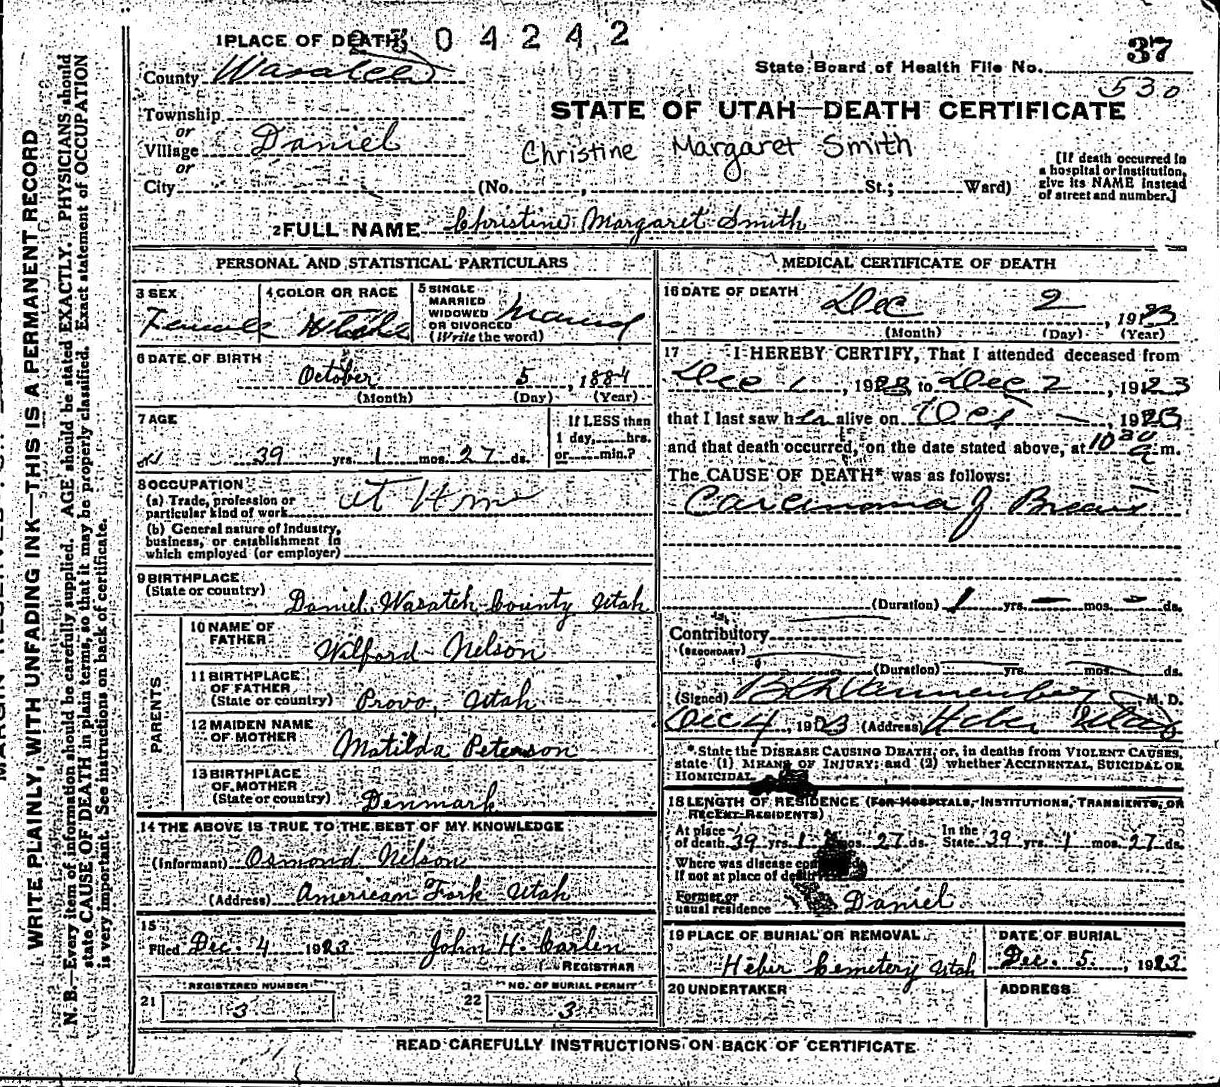 1 PLACE OF DEATH
04242
37
County Wasatch
State Board of Health File No.
530
Township
STATE OF UTAH—DEATH CERTIFICATE
or
Village Daniel
Christine Margaret Smith
or
City (No. , St.; Ward)
[If death occurred in
a hospital or institution,
give its NAME instead
of street and number.]
2 FULL NAME Christine Margaret Smith
PERSONAL AND STATISTICAL PARTICULARS
3 SEX
Female
4 COLOR OR RACE
White
5 SINGLE
MARRIED
WIDOWED
OR DIVORCED
(Write the word)
Married
6 DATE OF BIRTH
October 5, 1884
(Month) (Day) (Year)
7 AGE
39 yrs. 1 mos. 27 ds.
If LESS than
1 day, hrs.
or min.?
8 OCCUPATION
(a) Trade, profession or
particular kind of work
At Home
(b) General nature of industry,
business, or establishment in
which employed (or employer)
9 BIRTHPLACE
(State or country)
Daniel, Wasatch County Utah
PARENTS
10 NAME OF
FATHER
Wilford Nelson
11 BIRTHPLACE
OF FATHER
(State or country)
Provo, Utah
12 MAIDEN NAME
OF MOTHER
Matilda Peterson
13 BIRTHPLACE
OF MOTHER
(State or country)
Denmark
14 THE ABOVE IS TRUE TO THE BEST OF MY KNOWLEDGE
(Informant) Osmond Nelson
(Address) American Fork Utah
15
Filed Dec. 4 1923 John H. Carlen
REGISTRAR
REGISTERED NUMBER
21 3
NO. OF BURIAL PERMIT
22 3
MEDICAL CERTIFICATE OF DEATH
16 DATE OF DEATH
Dec 2, 1923
(Month) (Day) (Year)
17 I HEREBY CERTIFY, That I attended deceased from
Dec 1, 1923 to Dec 2, 1923
that I last saw her alive on Dec 1, 1923
and that death occurred, on the date stated above, at 10 30 a m.
The CAUSE OF DEATH* was as follows:
Carcinoma of Breast
(Duration) 1 yrs. — mos. — ds.
Contributory
(SECONDARY)
(Duration) yrs. mos. ds.
(Signed) M. D.
Dec 4, 1923 (Address) Heber Utah
*State the DISEASE CAUSING DEATH, or, in deaths from VIOLENT CAUSES,
state (1) MEANS OF INJURY; and (2) whether ACCIDENTAL, SUICIDAL OR
HOMICIDAL
18 LENGTH OF RESIDENCE (FOR HOSPITALS, INSTITUTIONS, TRANSIENTS, OR
RECENT RESIDENTS)
At place
of death 39 yrs. 1 mos. 27 ds.
In the
State 39 yrs. 1 mos. 27 ds.
Where was disease
If not at place of death
Former or
usual residence Daniel
19 PLACE OF BURIAL OR REMOVAL
Heber Cemetery Utah
DATE OF BURIAL
Dec. 5, 1923
20 UNDERTAKER
ADDRESS
READ CAREFULLY INSTRUCTIONS ON BACK OF CERTIFICATE
WRITE PLAINLY, WITH UNFADING INK—THIS IS A PERMANENT RECORD
N. B.—Every item of information should be carefully supplied. AGE should be stated EXACTLY. PHYSICIANS should
state CAUSE OF DEATH in plain terms, so that it may be properly classified. Exact statement of OCCUPATION
is very important. See instructions on back of certificate.